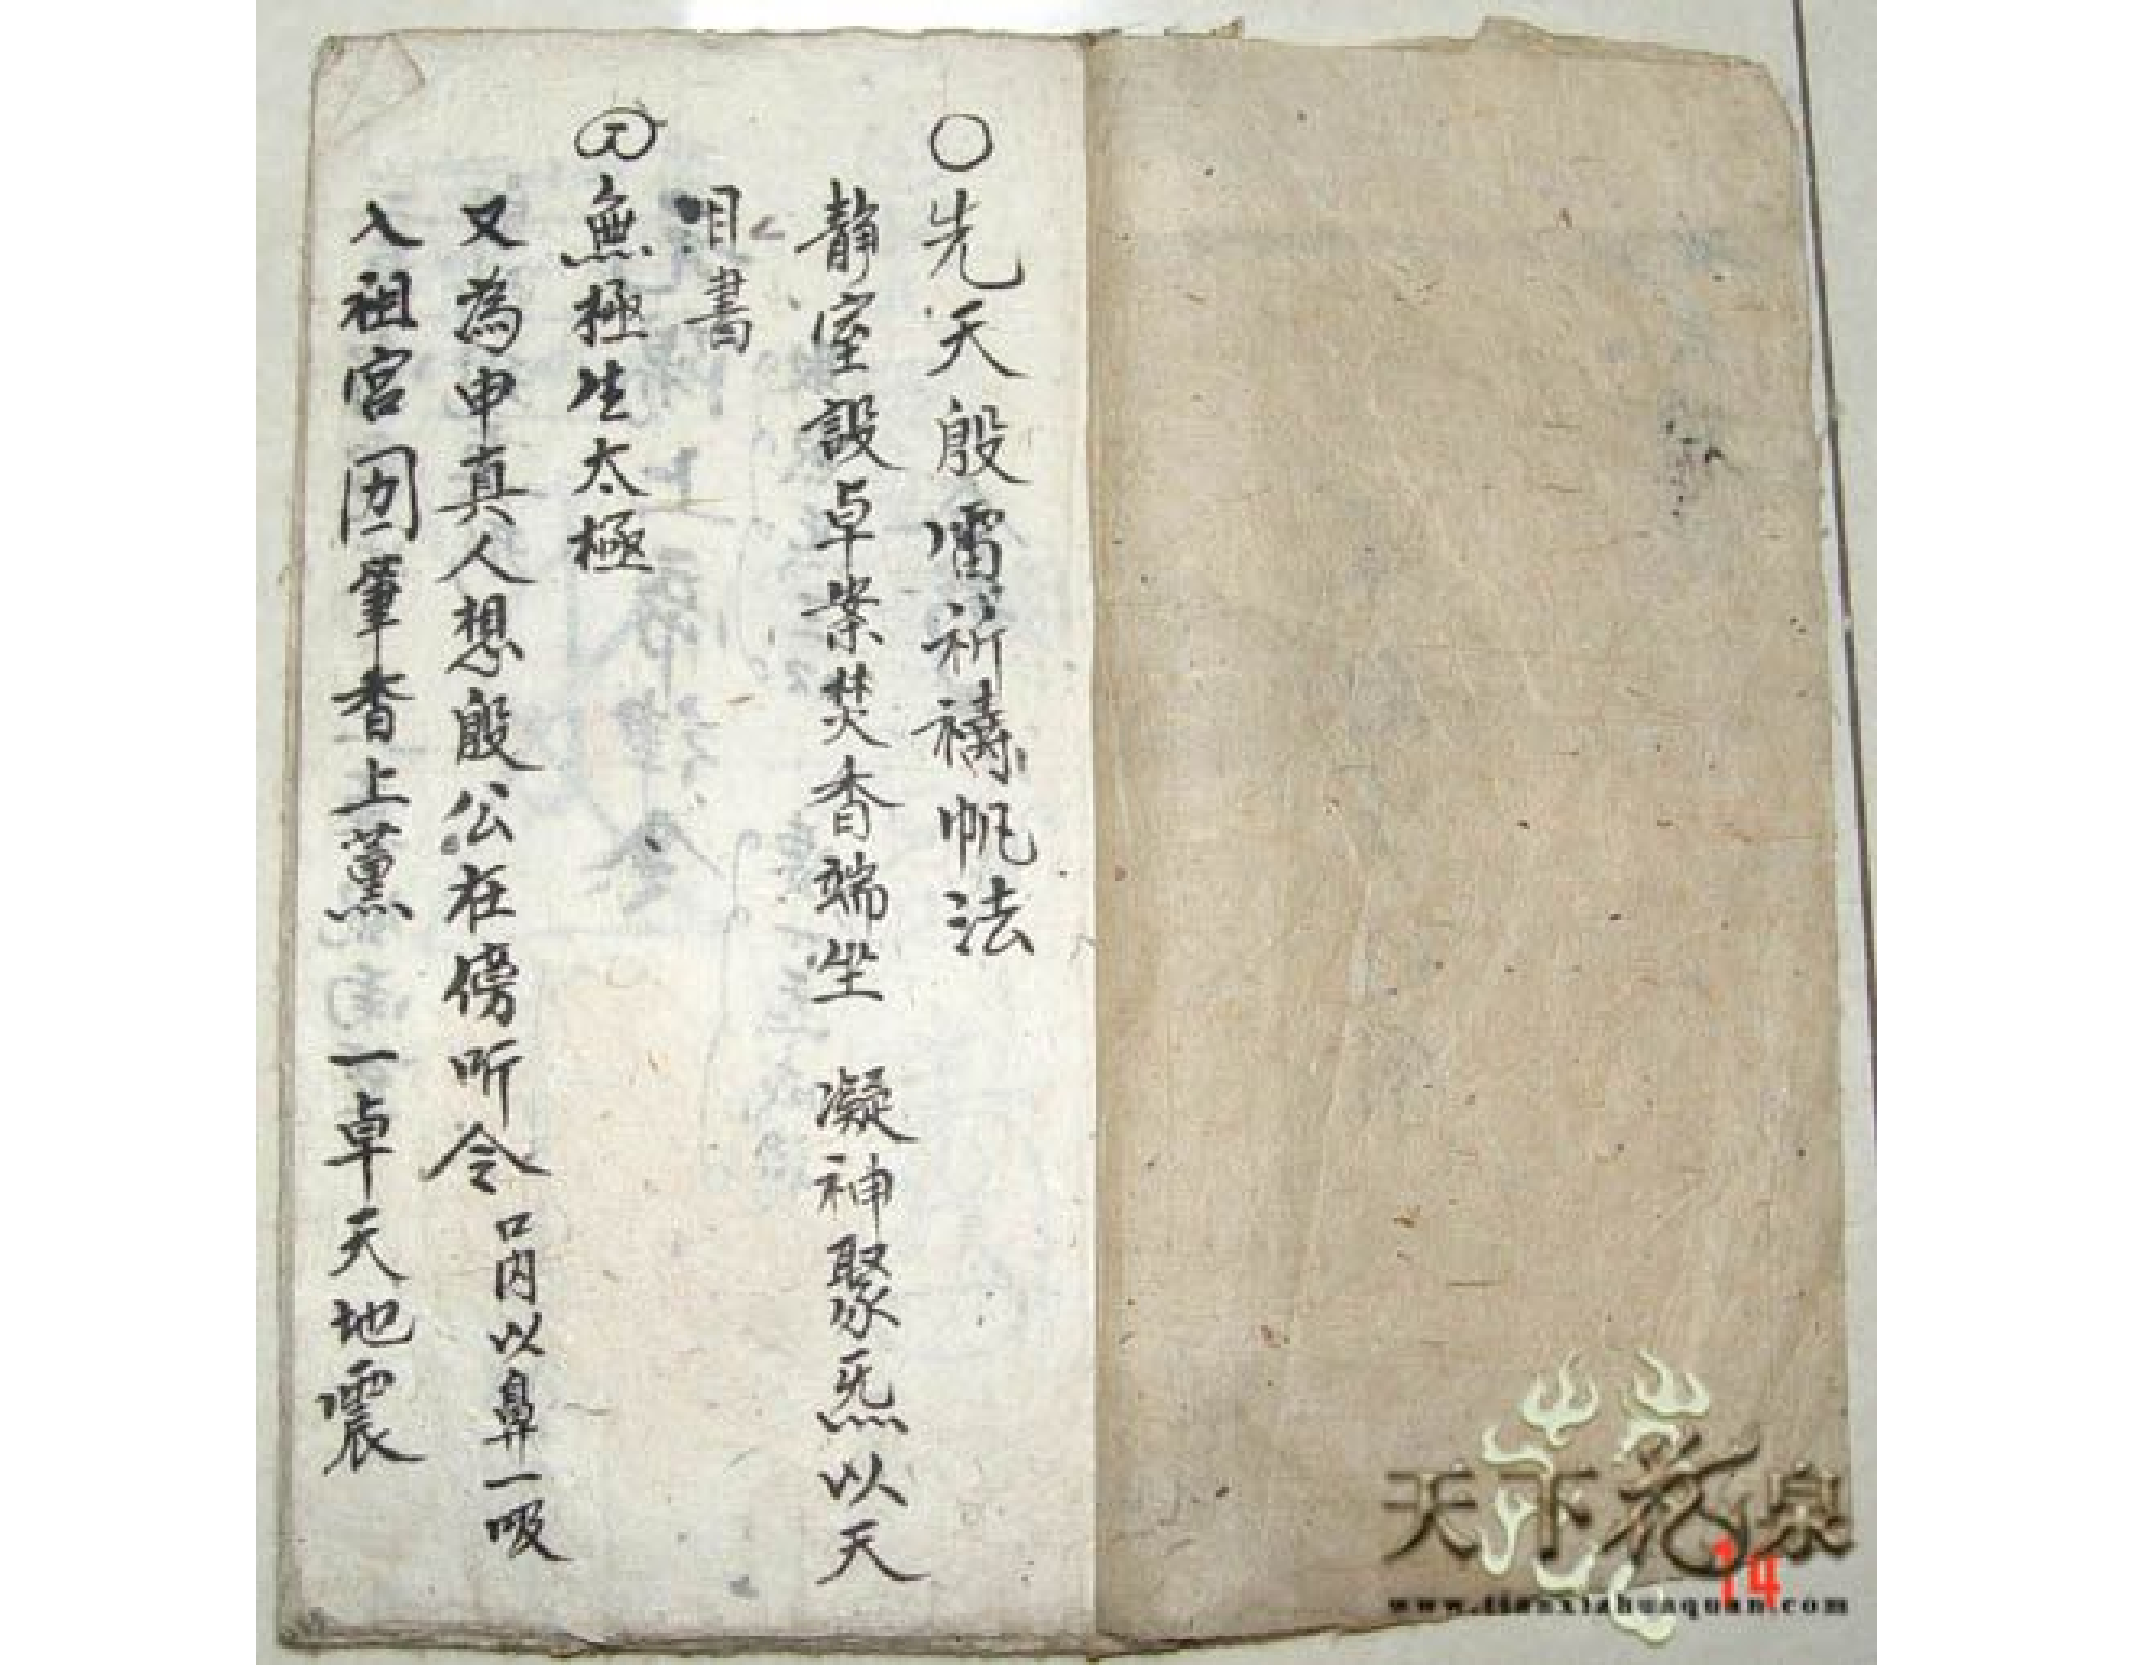 ○先天殷雷祈禱帆法
静室設卓業焚香端坐　凝神聚炁以天
目書
無極生太極
又為申真人想殷公在傍听令口内以鼻一吸
入祖宫筆香上薰一卓天地震
天下花泉
14
www.tianxiahuaquan.com